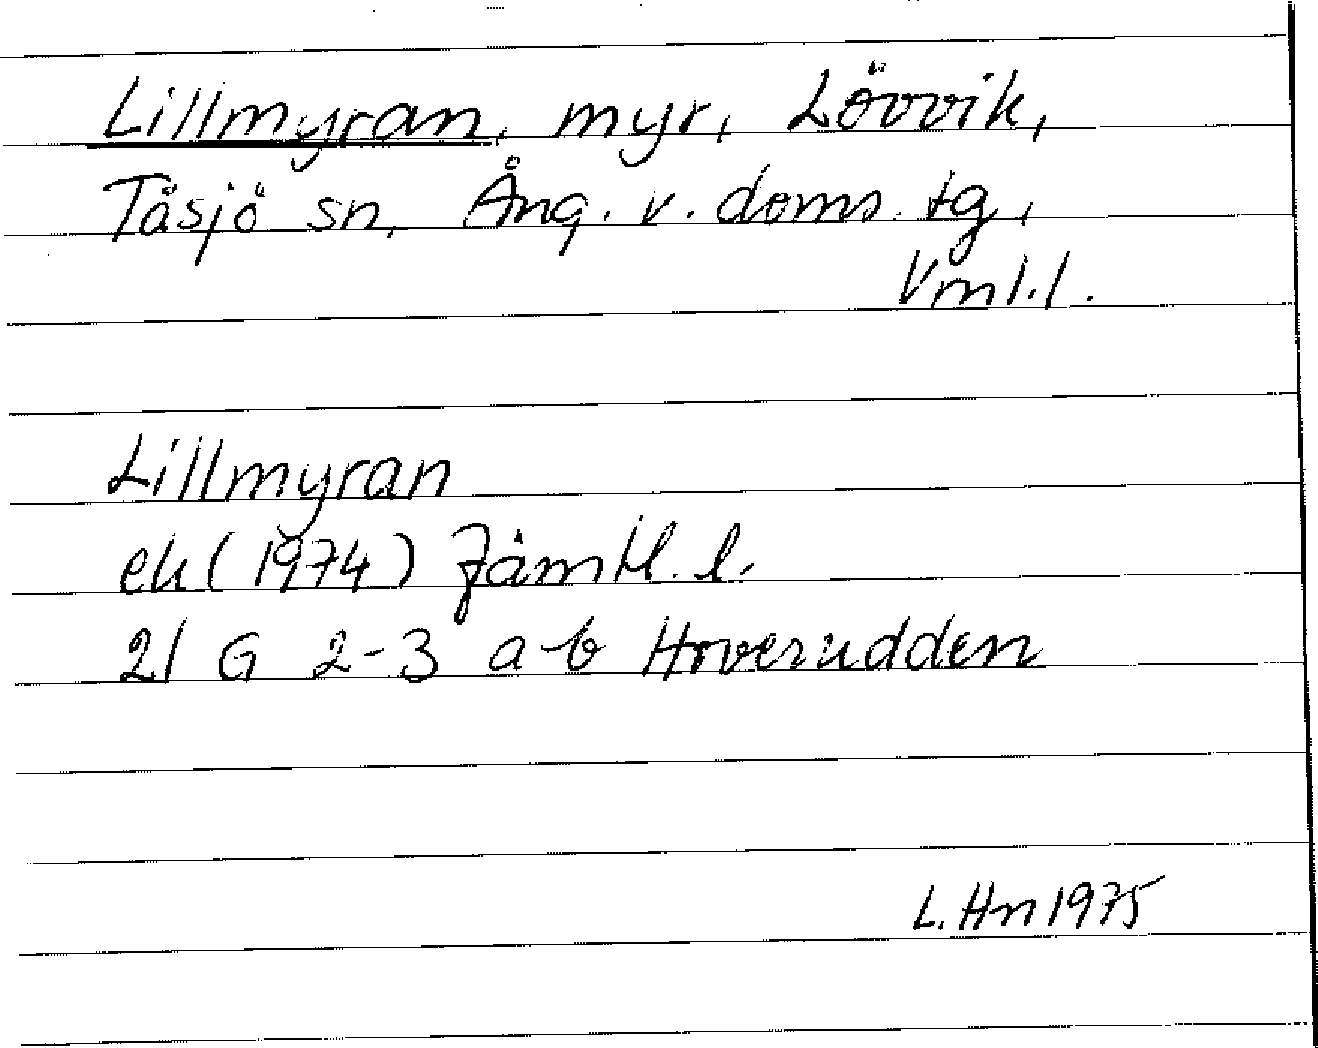 Lillmyran, myr, Lövvik,
Tåsjö sn, Ång. v. doms. tg,
Vml.l.
Lillmyran
ek (1974) Jämtl. l.
21 G 2-3 a-b Hoverudden
L. Hn 1975